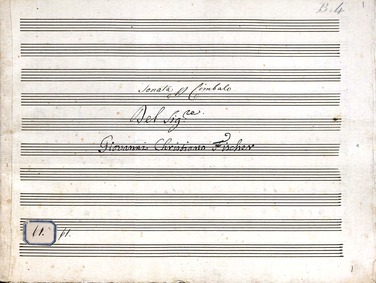 B. 4
1
Sonata p Cimbalo
Del Sig.re
Giovanni Christiano Fischer
11.
1